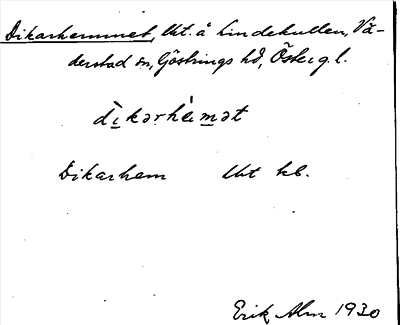 Dikarhemmet, lht. å Lindekullen, Vä-
derstad sn, Göstrings hd, Österg. l.
dìkərhèmət
Dikarhem lht kb.
Erik Alm 1930